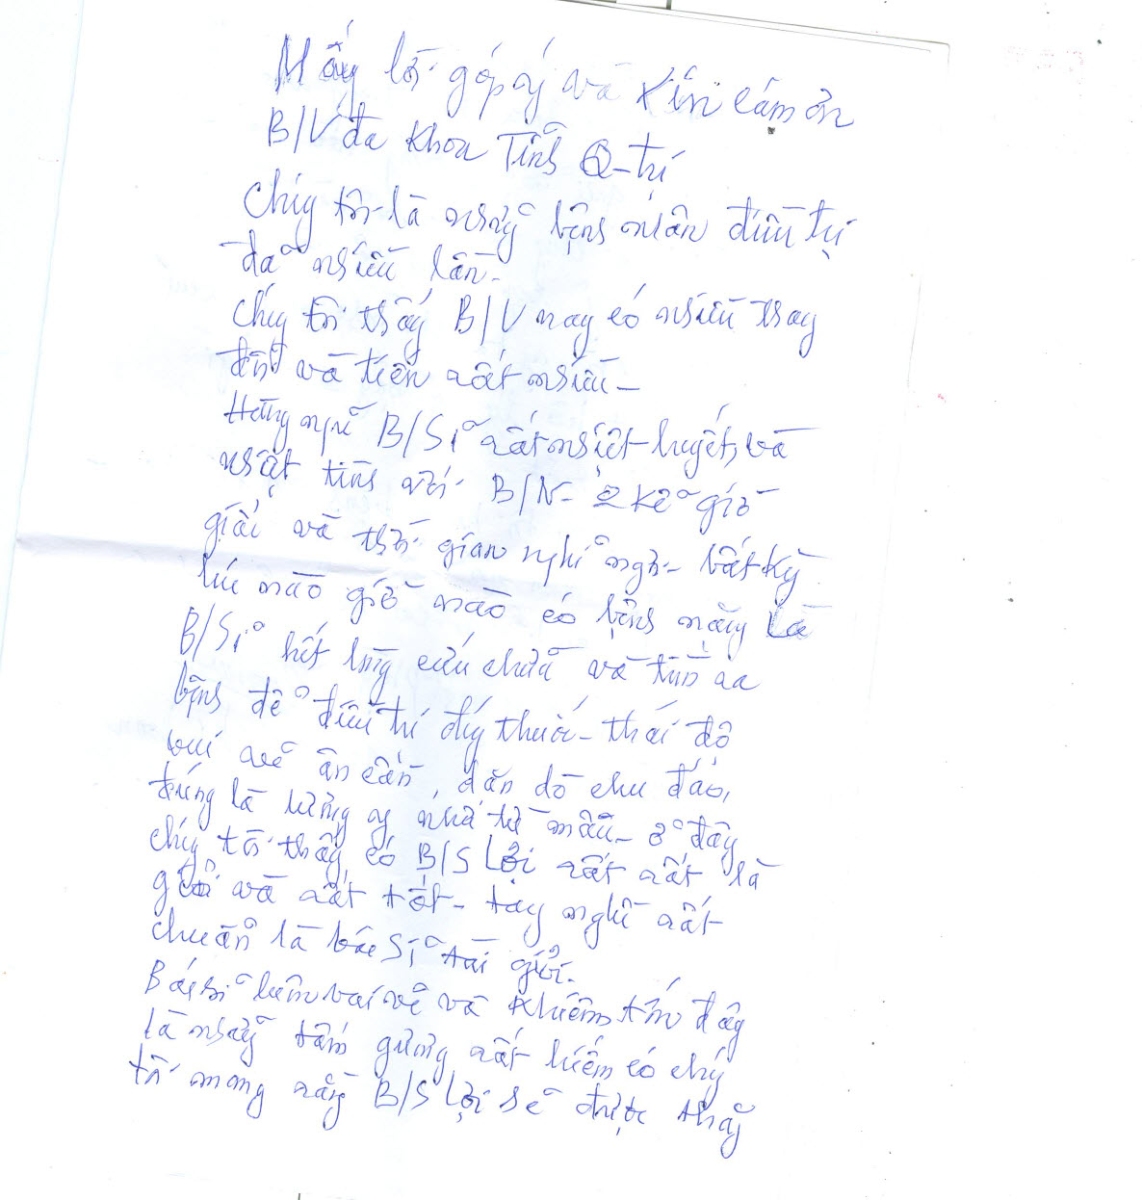 Mấy lời góp ý và Kín cám ơn
B/V đa khoa Tỉnh Q-trị
Chúng tôi là những bệnh nhân điều trị
đã nhiều lần.
Chúng tôi thấy B/V nay có nhiều thay
đổi và tiến rất nhiều-
Hướng nghĩ B/Sĩ rất nhiệt huyết, và
nhiệt tình với B/N- 2 kể giờ
giấc và thời gian nghỉ ngơi- bất kỳ
lúc nào giờ nào có bệnh nặng là
B/Sĩ hết lòng cứu chữa và tìm ra
bệnh để điều trị đúng thuốc- thái độ
vui vẻ ân cần, dặn dò chu đáo,
đúng là lương y như từ mẫu- ở đây
chúng tôi thấy có B/S Lợi rất rất là
giỏi và rất tốt- tay nghề rất
chuẩn là bác Sĩ tài giỏi.
Bác sĩ luôn vui vẻ và khiêm tốn đây
là những tấm gương rất hiếm có chúng
tôi mong rằng B/S Lợi sẽ được thăng